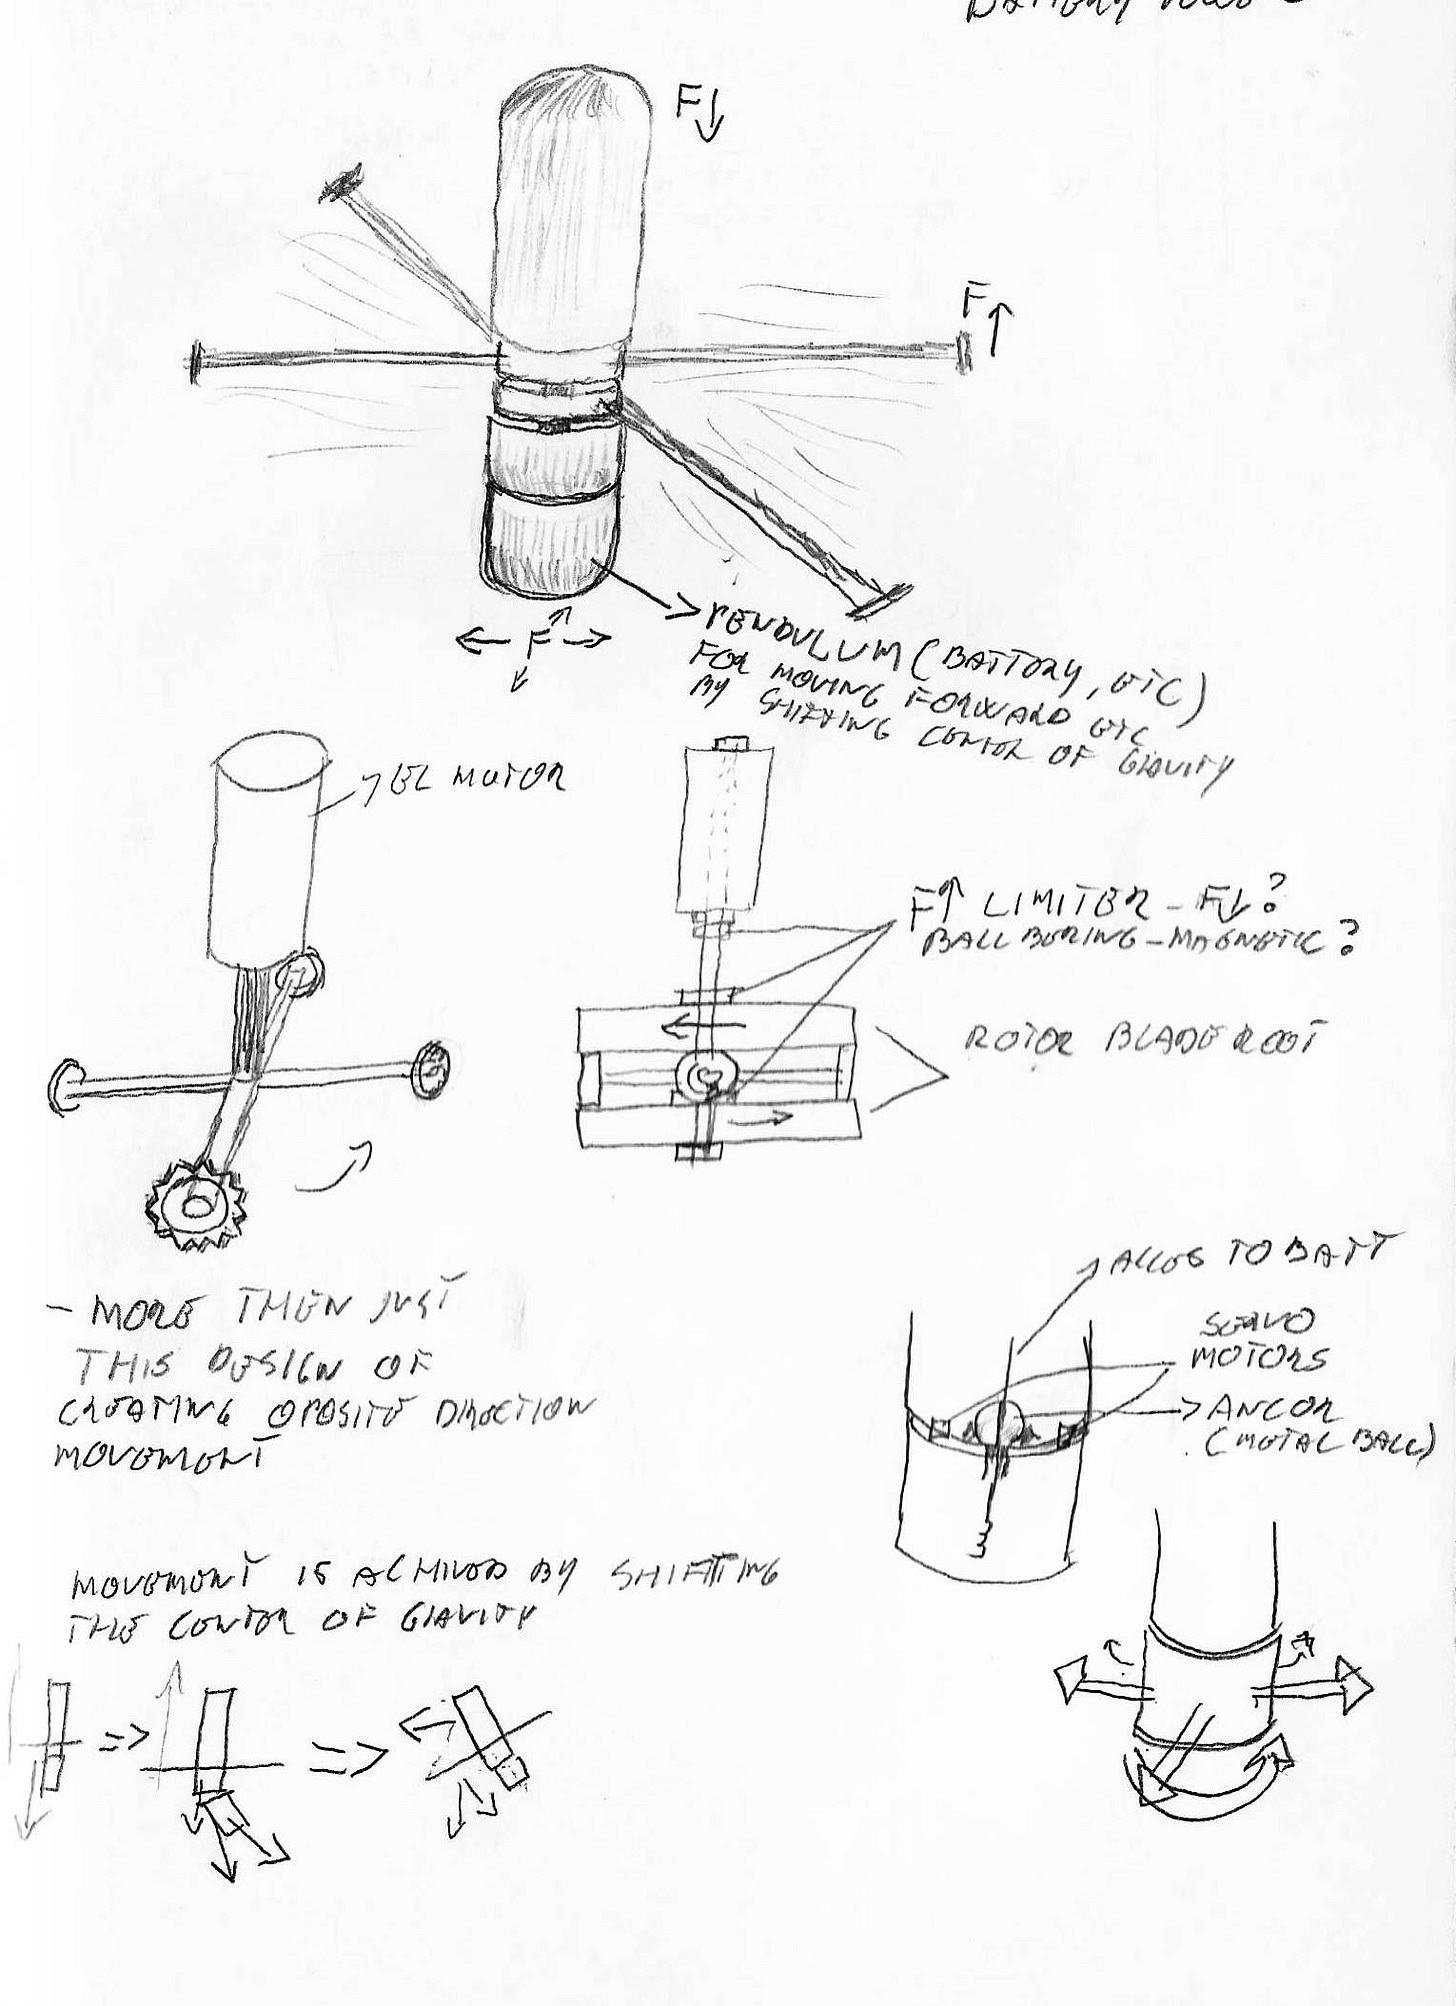 BATTERY
F↓
F↑
← F →
PENDULUM (BATTORY, ETC)
FOR MOVING FORWARD ETC
BY SHIFTING CENTOR OF GRAVITY
EL MOTOR
F↑ LIMITER - F↓?
BALL BERING - MAGNETIC?
ROTOR BLADE ROOT
- MORE THEN JUST
THIS DESIGN OF
CREATING OPOSITE DIRECTION
MOVEMENT
TO BATT
SERVO
MOTORS
ANCOR
(METAL BALL)
MOVEMENT IS ACHIVED BY SHIFTING
THE CENTOR OF GRAVITY